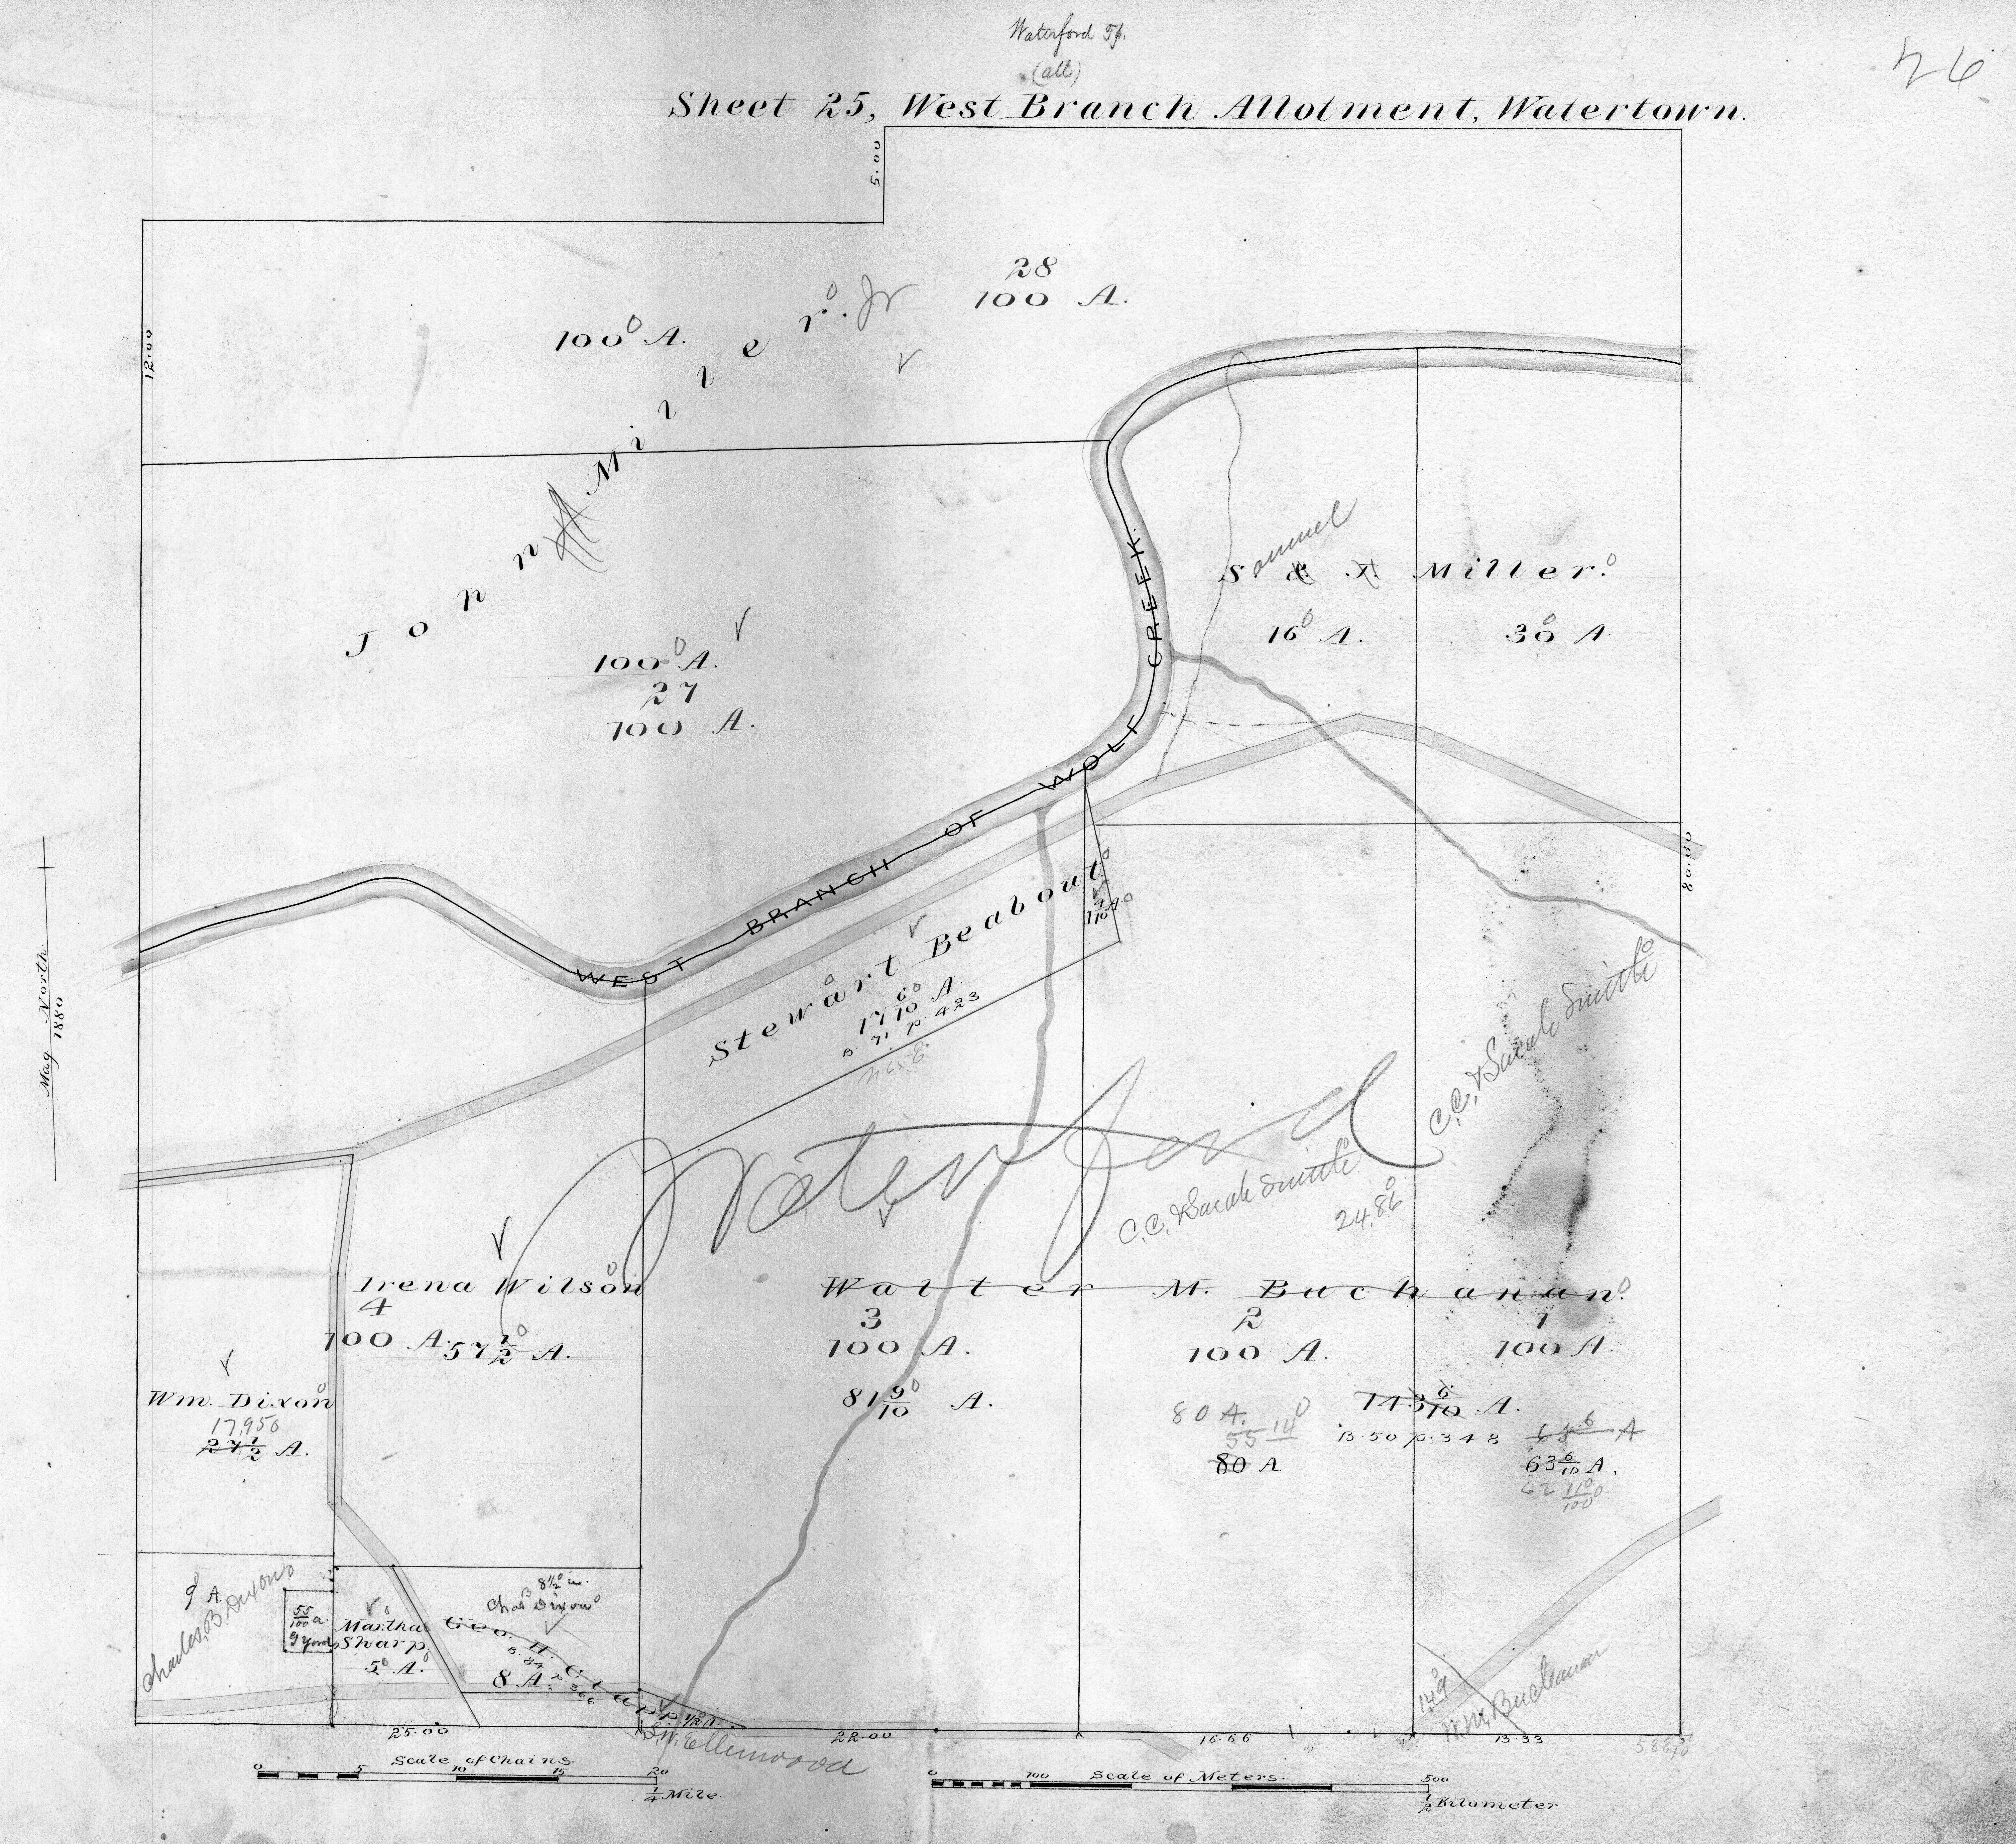 Waterford Tp.
(all)
26
Sheet 25, West Branch Allotment, Watertown.
5.00
12.00
28
100 A.
100 A.
John Miller. Jr
100 A.
27
100 A.
Samuel
S & J. Miller.
16 A.
30 A.
WEST BRANCH OF WOLF CREEK.
80.00
Mag North.
1880
Stewart Beabout
17 6/10 A.
B. 71 P. 423
C.C. & Sarah Smith
Waterford
C.C. & Sarah Smith
24.86
Irena Wilson
4
100 A.
57 1/2 A.
Walter M. Buchanan.
3
100 A.
81 9/10 A.
2
100 A.
1
100 A.
80 A.
55 14
80 A
143 6/10 A.
B. 50 p. 348
63 6/10 A.
62 11/100
Wm. Dixon
17,950
27 1/2 A.
9 A.
Charles B. Dixon
55/100 a
G Yard
Martha
Sharp
5 A.
8 1/2 a.
Chas B Dixon
Geo. H. Clapp
B. 84 P. 366
8 A.
1/2 A.
Ellenwood
14.9
W.M. Buchanan
25.00
22.00
16.66
13.33
Scale of Chains.
0 5 10 15 20
1/4 Mile.
Scale of Meters.
0 100 500
1/2 Kilometer